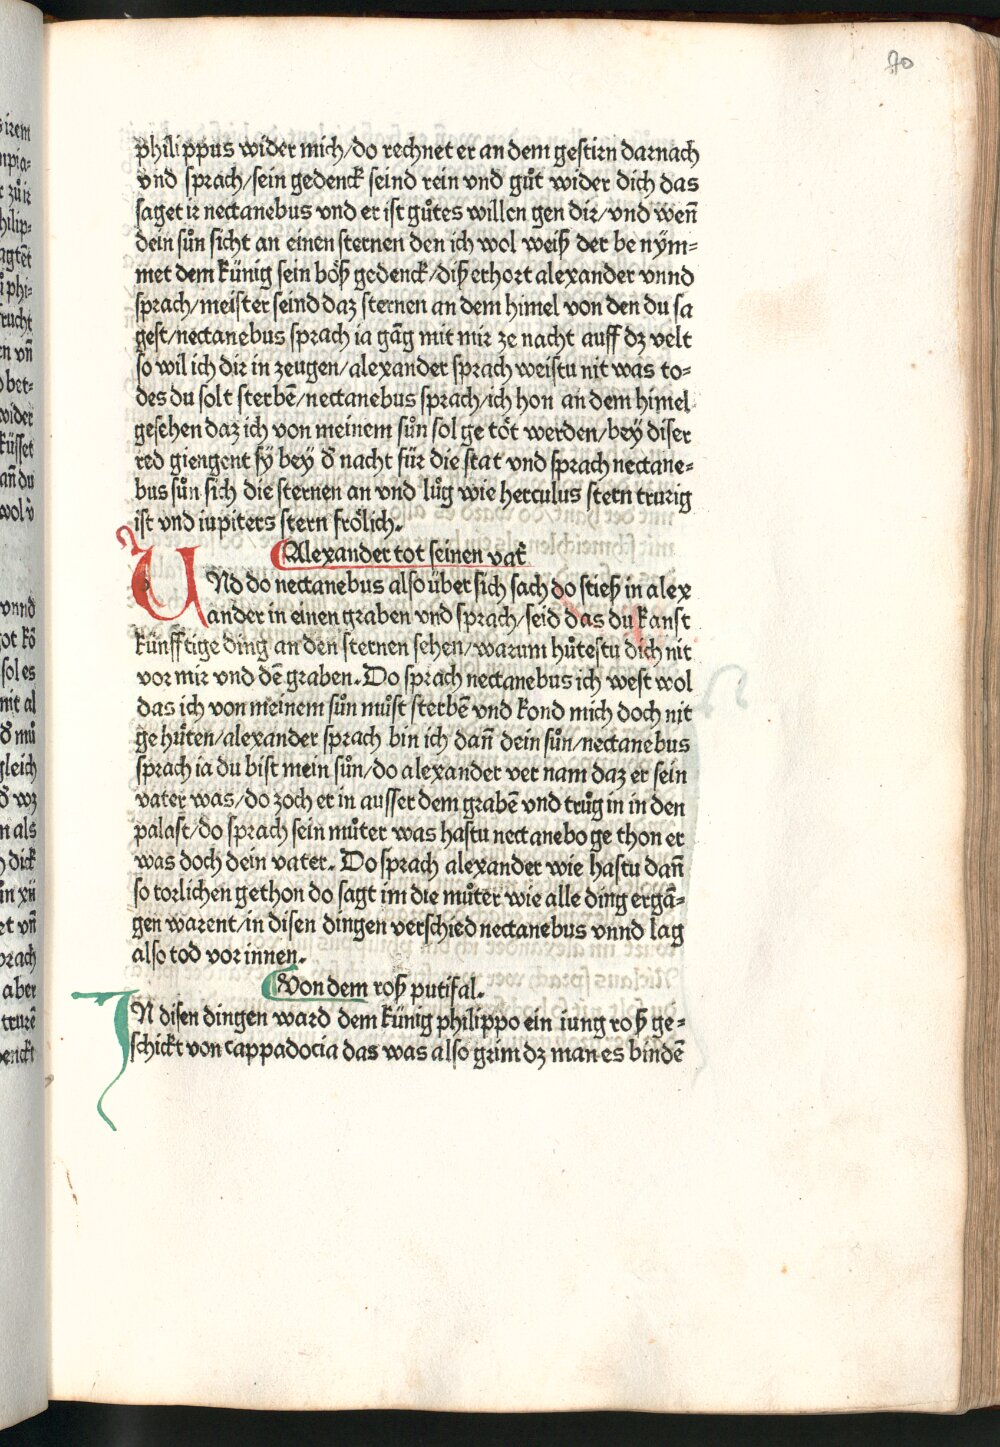 80
philippus wider mich/do rechnet er an dem gestirn darnach
vnd sprach/sein gedenck seind rein vnd gůt wider dich das
saget ir nectanebus vnd er ist gůtes willen gen dir/vnd wen̄
dein sůn sicht an einen sternen den ich wol weiß der be nym⸗
met dem künig sein böß gedenck/diß erhort alexander vnnd
sprach/meister seind daz sternen an dem himel von den du sa
gest/nectanebus sprach ia gāg mit mir ze nacht auff dz velt
so wil ich dir in zeugen/alexander sprach weistu nit was to⸗
des du solt sterbē/nectanebus sprach/ich hon an dem himel
gesehen daz ich von meinem sůn sol ge töt werden/bey diser
red giengent sy bey d̄ nacht für die stat vnd sprach nectane⸗
bus sůn sich die sternen an vnd lůg wie herculus stern trurig
ist vnd iupiters stern frölich.
Alexander tot seinen vat̄
UNd do nectanebus also über sich sach do stieß in alex
ander in einen graben vnd sprach/seid das du kanst
künfftige ding an den sternen sehen/warum hůtestu dich nit
vor mir vnd dē graben. Do sprach nectanebus ich west wol
das ich von meinem sůn můst sterbē vnd kond mich doch nit
ge hůten/alexander sprach bin ich dan̄ dein sůn/nectanebus
sprach ia du bist mein sůn/do alexander ver nam daz er sein
vater was/do zoch er in ausser dem grabē vnd trůg in in den
palast/do sprach sein můter was hastu nectanebo ge thon er
was doch dein vater. Do sprach alexander wie hastu dan̄
so torlichen gethon do sagt im die můter wie alle ding ergā⸗
gen warent/in disen dingen verschied nectanebus vnnd lag
also tod vor innen.
Von dem roß putifal.
IN disen dingen ward dem künig philippo ein iung roß ge⸗
schickt von cappadocia das was also grim dz man es bindē